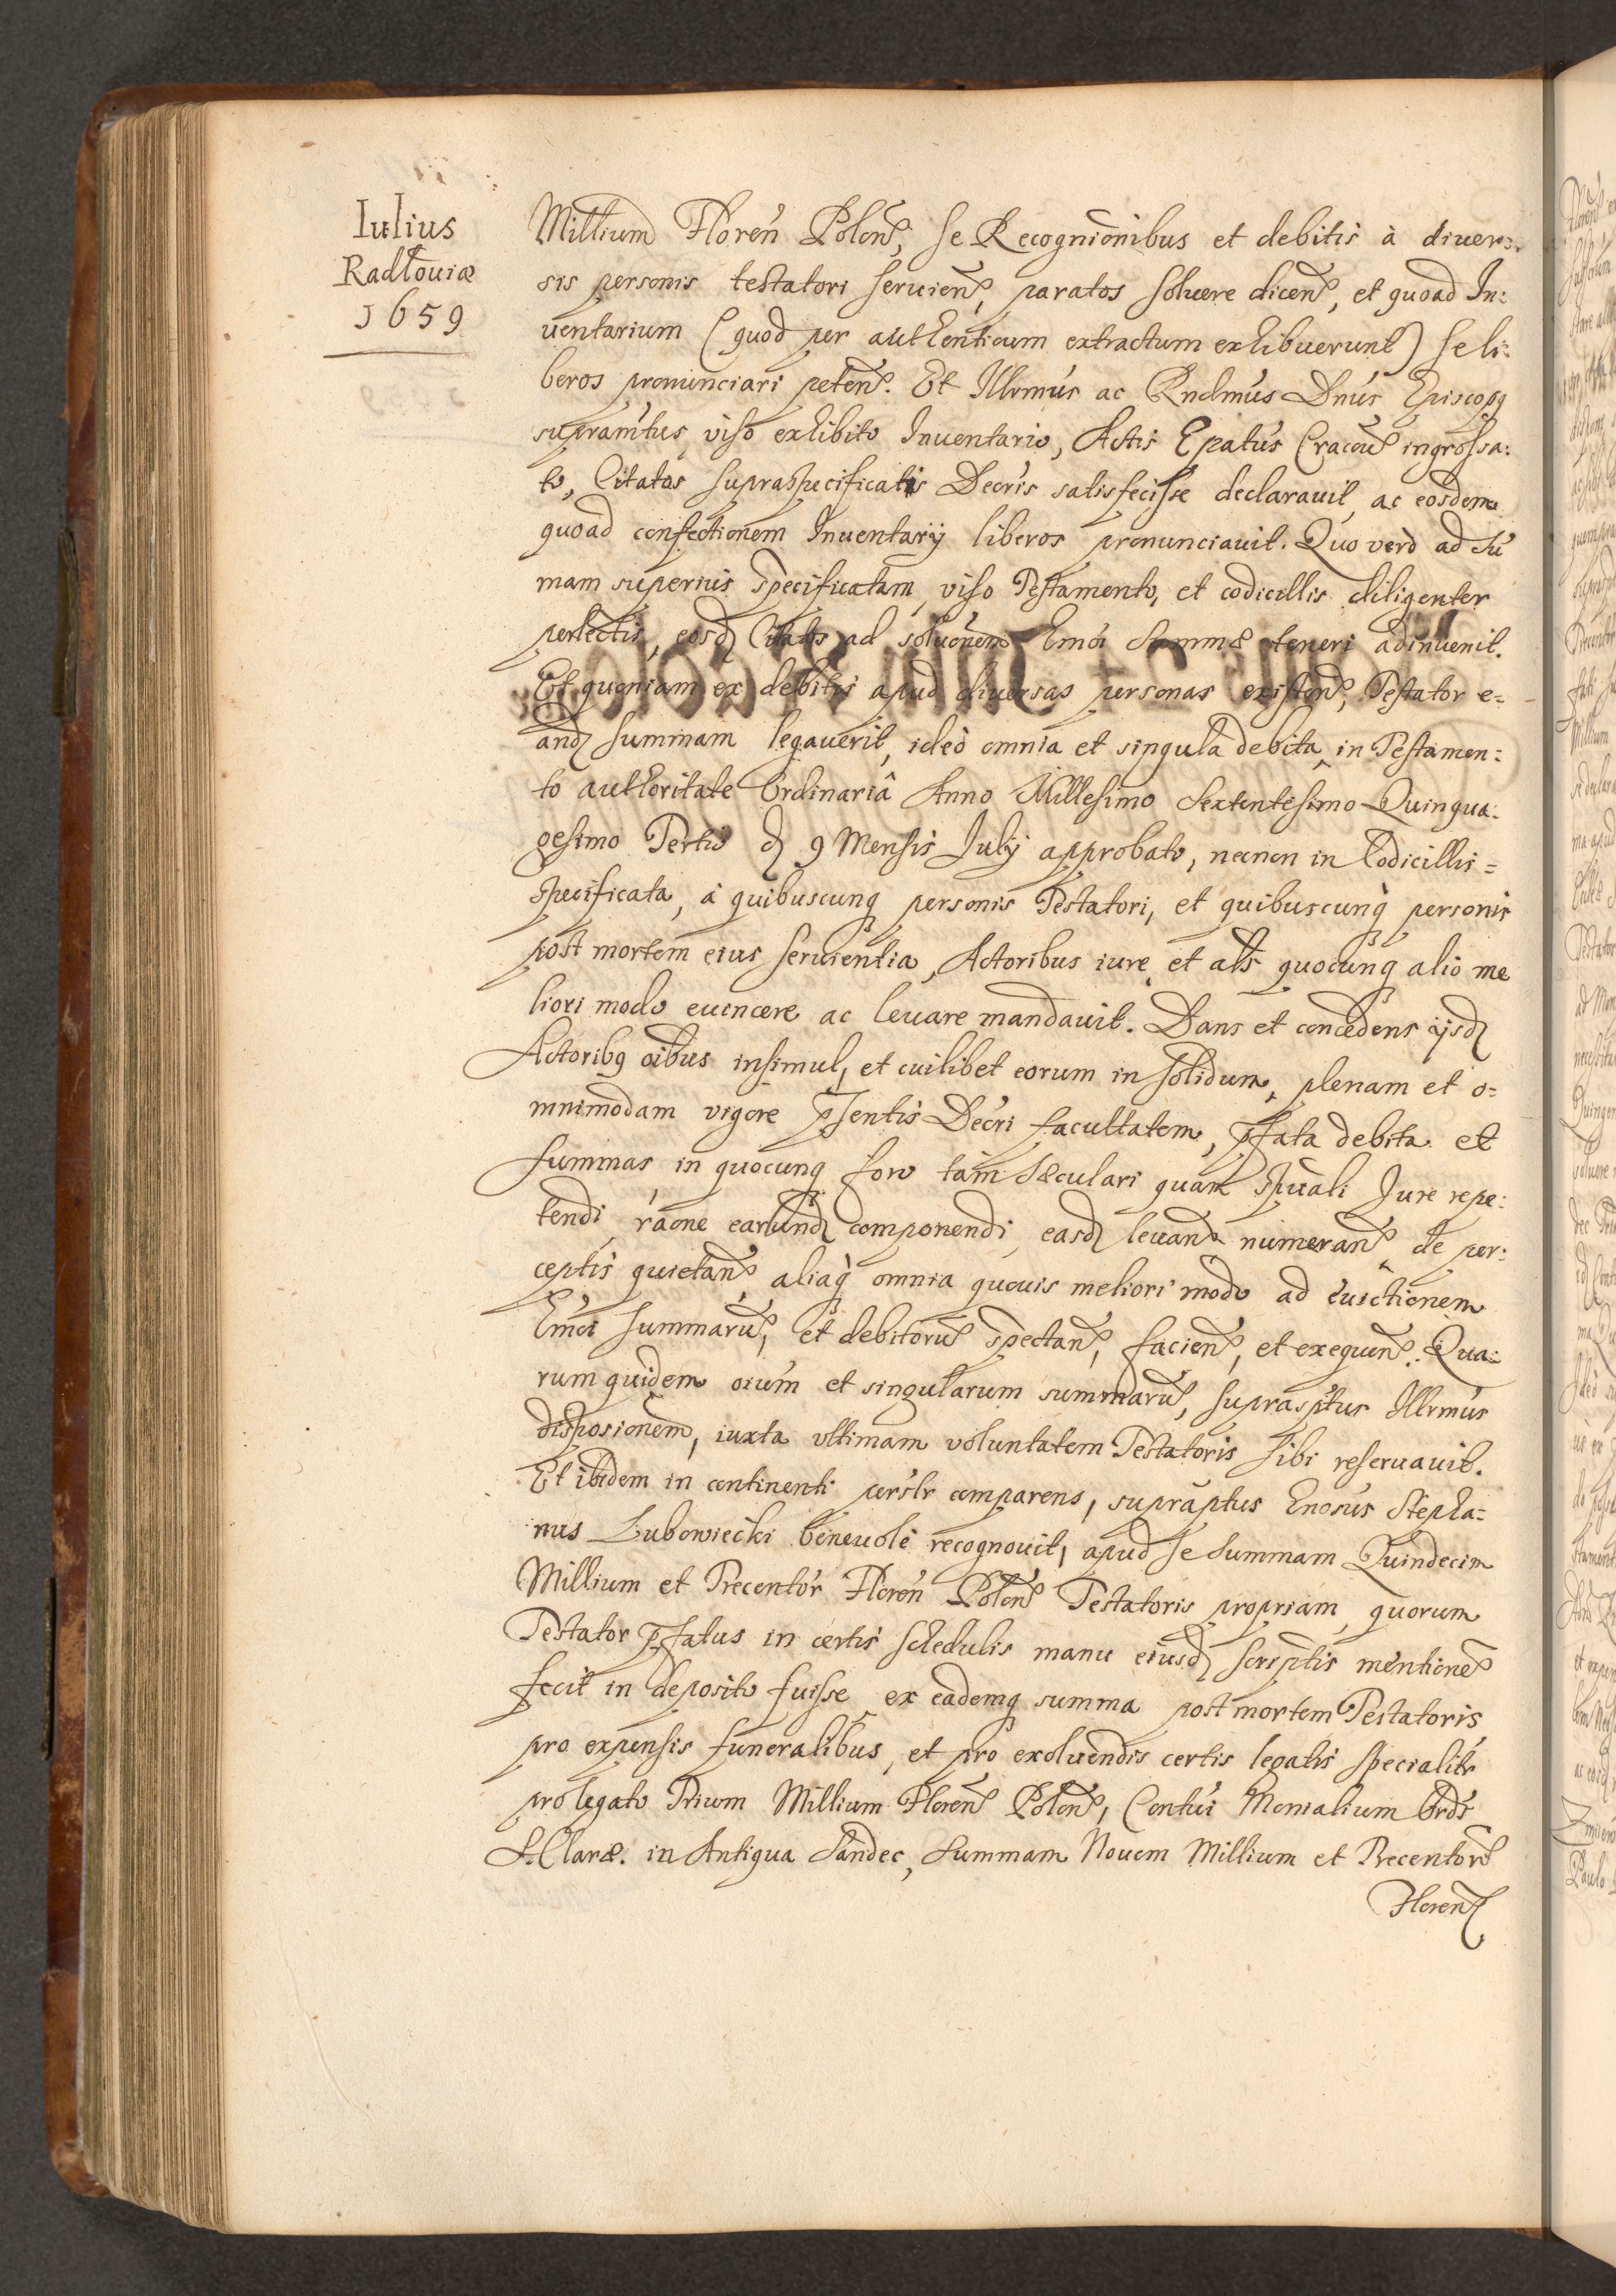 Iulius
Radłouiæ
1659
Millium Floreń Poloń, se Recognitionibus et debitis à diuer-
sis personis testatori seruień, paratos soluere diceń, et quoad In:
uentarium (quod per authenticum extractum exhibuerunt) se li:
beros pronunciari peteń. Et Illrmús ac Rndmús Dnús Episcopq
supramtus, viso exhibito Inuentario, Actis Epatús Cracou ingrossa:
to, Citatos supraspecificatis Decris satisfecisse declarauit, ac eosdem
quoad confectionem Inuentarij liberos pronunciauit. Quo verò ad Sú
mam superius specificatam, viso Testamento, et codicillis diligenter
perlectis, eosd Citatos ad soluonem Emoi Summæ teneri adinuenit.
Et quoniam ex debitis apud diuersas personas existeń, Testator e=
and summam legauerit, ideò omnia et singula debita, in Testamen:
to authoritate Ordinariâ Anno Millesimo Sextentesimo Quinqua:
gesimo Tertio d 9 Mensis July approbato, necnon in Codicillis =
specificata, à quibuscunq personis Testatori, et quibuscunq personis
post mortem eius seruientia, Actoribus iure, et als quocunq alio me
liori modo euincere ac leuare mandauit. Dans et concedens ijsd
Actoribq oibus insimul, et cuilibet eorum in solidum, plenam et o=
mnimodam vigore psentis Decri facultatem, pfata debita et
summas in quocunq foro tàm Sæculari quam Spuali Jure repe:
tendi, raone earund componendi, easd leuań numerań de per:
ceptis quietań, aliaq omnia quouis meliori modo ad euictionem
Emoi summarú, et debitorú spectań, facień, et exequeń. Qua:
rum quidem oium et singularum summarú, supraspitus Illrmús
disposionem, iuxta vltimam voluntatem Testatoris sibi reseruauit.
Et ibidem in continenti perslr comparens, supraptus Gnosus Stepha=
nus Lubowiecki beneuolè recognouit, apud se Summam Quindecim
Millium et Trecentor Floreń Poloń Testatoris propriam, quorum
Testator pfatus in certis schedulis manu eiusd scriptis mentione
fecit in deposito fuisse ex eademq summa post mortem Testatoris
pro expensis funeralibus, et pro exoluendis certis legatis specialitr
pro legato Trium Millium Floreń Poloń, Contui Monialium Ords
S. Claræ. in Antiqua Sandec, Summam Nouem Millium et Trecentor
Floreń